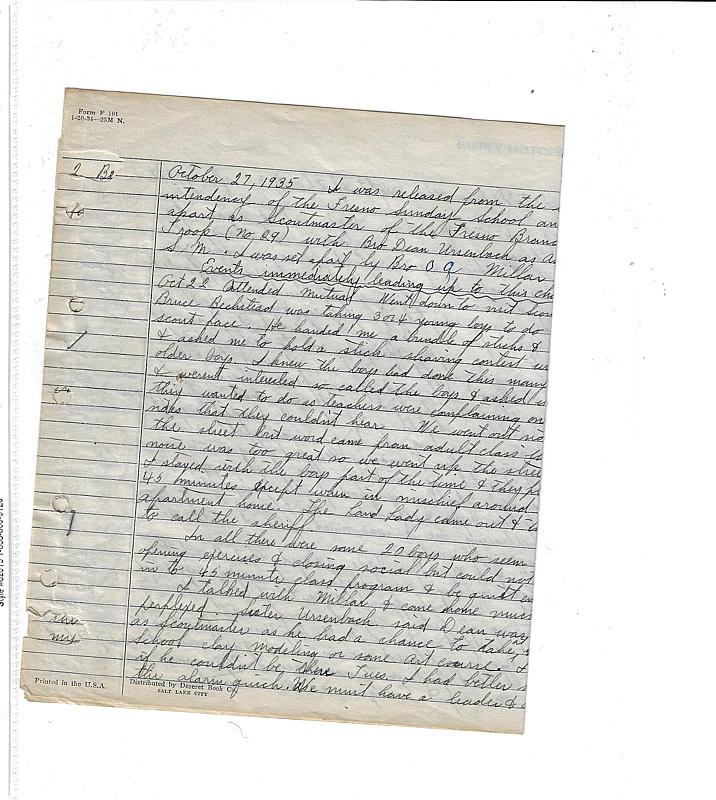 Form F 101
1-20-34—25M N.
FAMILY HISTORY
2 Be
October 27, 1935 I was released from the
intendency of the Fresno Sunday School an
apart as Scoutmaster of the Fresno Branc
Troop (No 29) with Bro Dean Ursenbach as A
S. M. I was set apart by Bro O 9 Millar
Events immediately leading up to this cha
Oct 22 Attended Mutual Went down to visit Scou
Bruce Beckstead was taking 3 or 4 young boys to do
scout pace. He handed me a bundle of sticks &
& asked me to hold a stick shaving contest
older boys. I knew the boys had done this many
& weren't interested so called the boys & asked
they wanted to do as teachers were complaining on
noise that they couldn't hear. We went out
the street but word came from adult class
noise was too great so we went up the stree
I stayed with the boys part of the time & they
45 minutes except when in mischief around
apartment home. The land lady came out &
to call the sheriff.
In all there were some 20 boys who seem
opening exercises & closing social but could not
in to 45 minute class program & be quiet
I talked with Millar & come home muc
perplexed. Sister Ursenbach said Dean was
as Scoutmaster as he had a chance to take
School clay modeling or some Art course.
if he couldn't be there Tues. I had better
the alarm quick. We must have a leader &
my
Printed in the U.S.A.
Distributed by Deseret Book Co.
SALT LAKE CITY